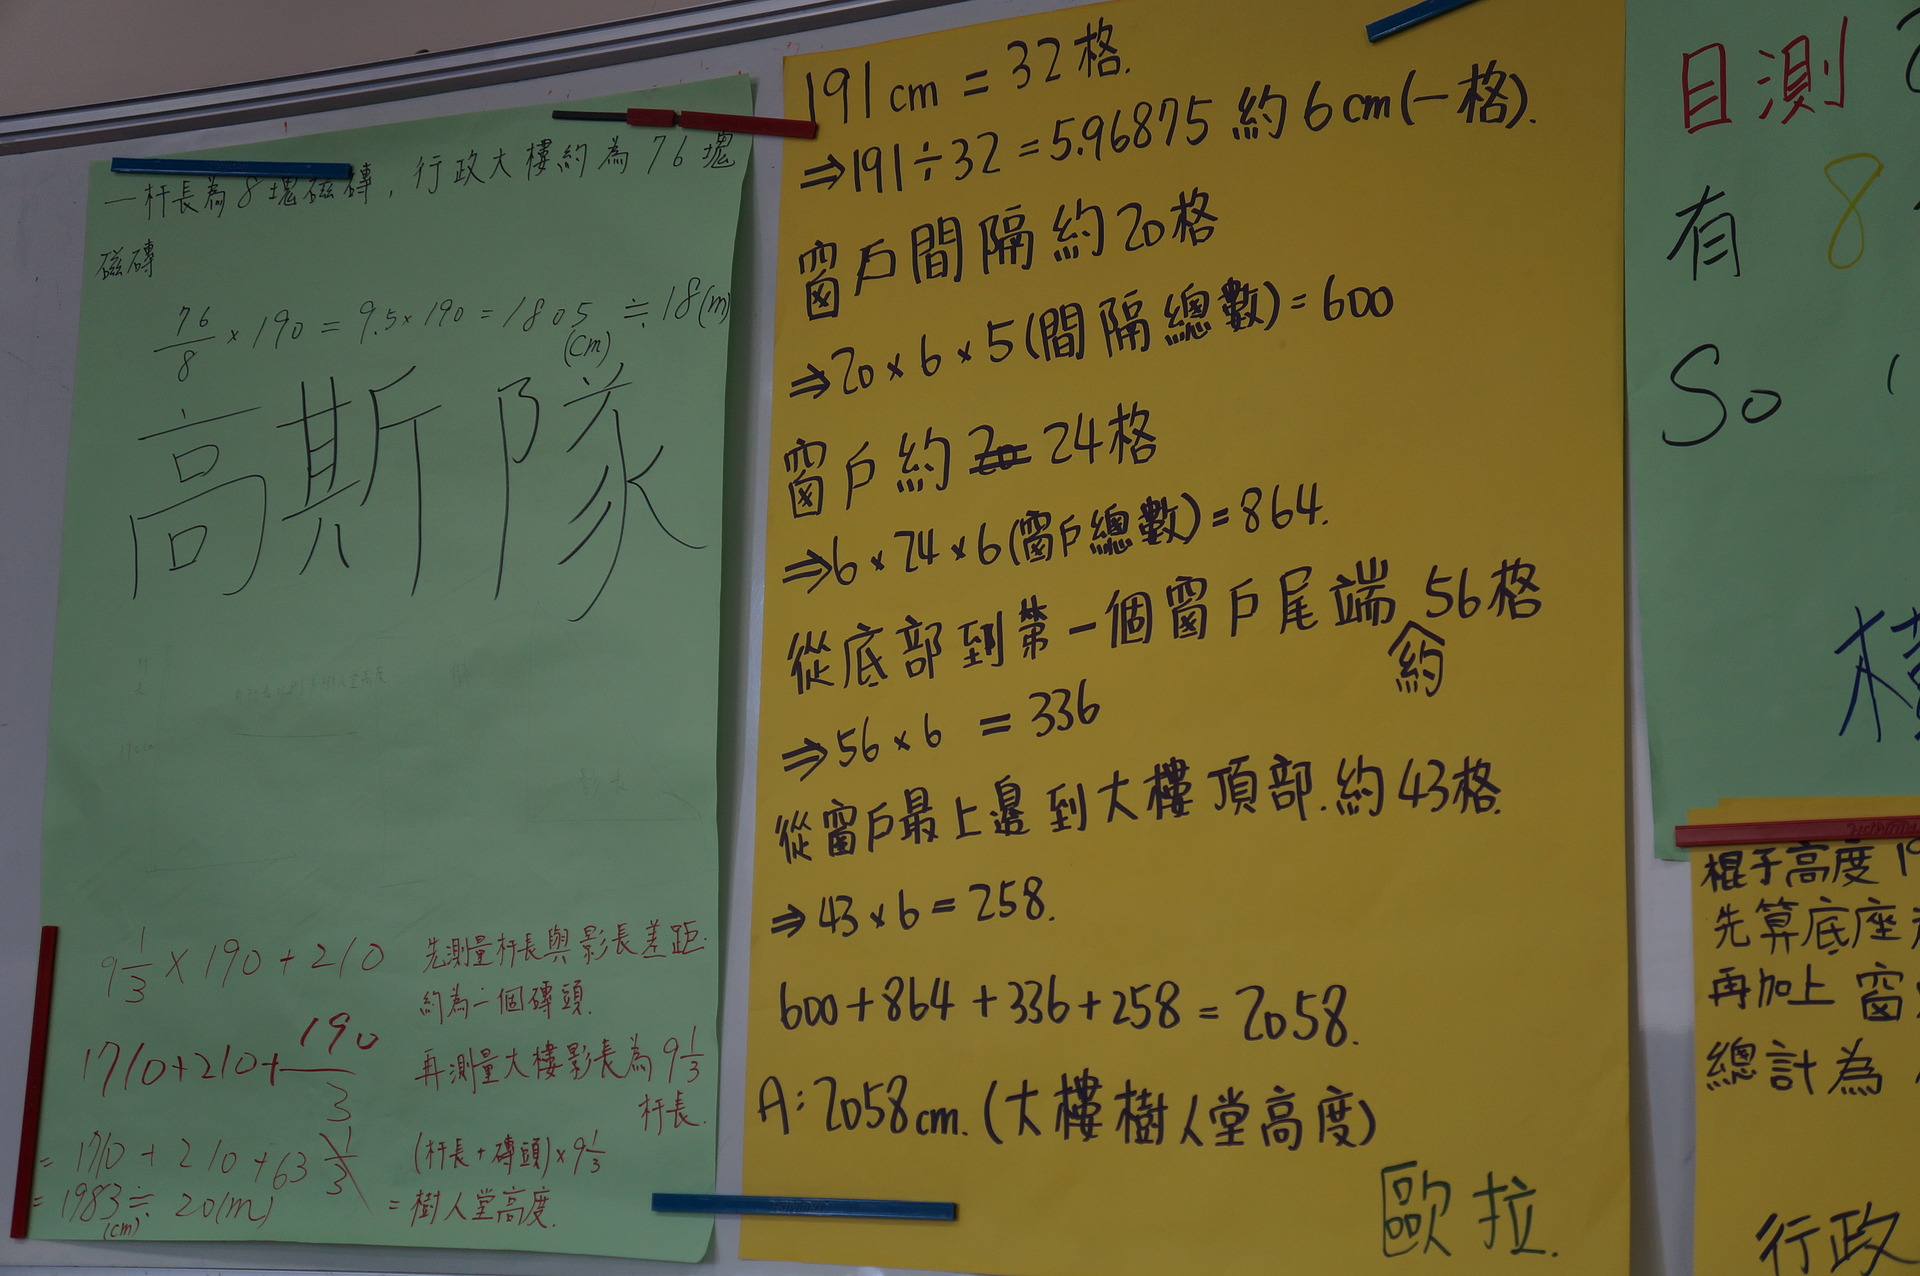 一杆長為8塊磁磚，行政大樓約為76塊
磁磚
76/8 × 190 = 9.5 × 190 = 1805 (cm) ≒ 18(m)
高斯隊
9 1/3 × 190 + 210
1710 + 210 + 190/3
= 1710 + 210 + 63 1/3
= 1983 (cm) ≒ 20(m)
先測量杆長與影長差距.
約為一個磚頭.
再測量大樓影長為 9 1/3
杆長.
(杆長 + 磚頭) × 9 1/3
= 樹人堂高度.
191cm = 32格.
⇒ 191÷32 = 5.96875 約6cm(一格).
窗戶間隔約20格
⇒ 20 × 6 × 5 (間隔總數) = 600
窗戶約 20 24格
⇒ 6 × 24 × 6 (窗戶總數) = 864.
從底部到第一個窗戶尾端約56格
⇒ 56 × 6 = 336
從窗戶最上邊到大樓頂部.約43格
⇒ 43 × 6 = 258.
600 + 864 + 336 + 258 = 2058.
A: 2058cm. (大樓樹人堂高度)
歐拉.
目測
有 8
So
棍子高度 19
先算底座
再加上 窗
總計為
行政